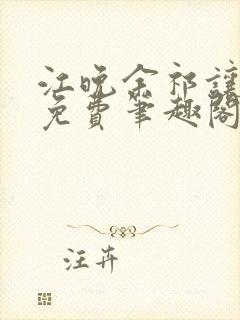 江晚余祁让
免费笔趣阁
注卉